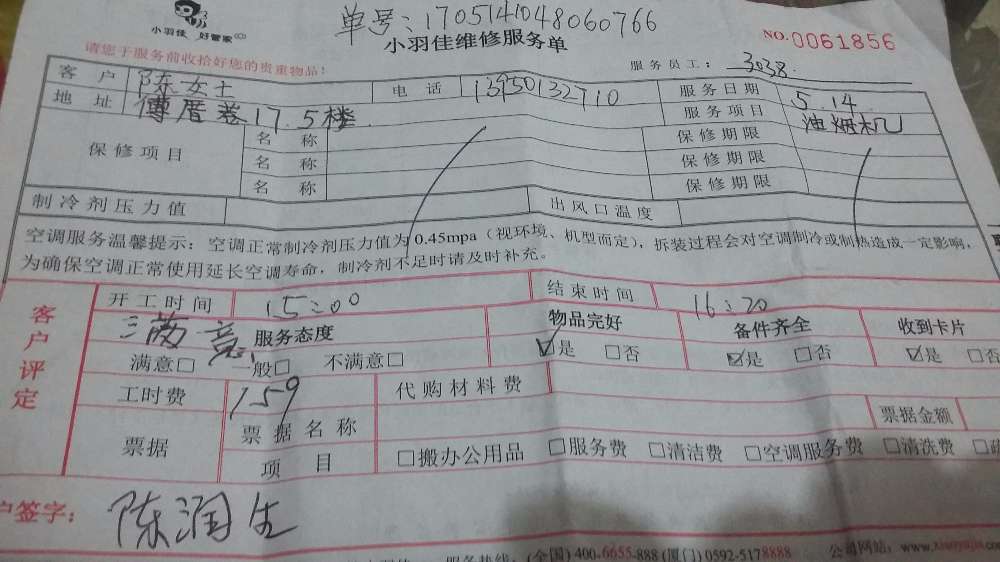 小羽佳 好管家
单号：170514104806​0766
小羽佳维修服务单
NO.0061856
请您于服务前收拾好您的贵重物品！
服务员工：3038.
客户 陈女士 电话 13950132710 服务日期 5.14
地址 17.5楼 服务项目 油烟机
保修项目 名称 保修期限
名称 保修期限
名称 保修期限
制冷剂压力值 出风口温度
空调服务温馨提示：空调正常制冷剂压力值为0.45mpa（视环境、机型而定），拆装过程会对空调制冷或制热造成一定影响，
为确保空调正常使用延长空调寿命，制冷剂不足时请及时补充。
客户评定
开工时间 15:00 结束时间 16:20
满意 服务态度 物品完好 备件齐全 收到卡片
满意□ 一般□ 不满意□ ☑是 □否 ☑是 □否 ☑是 □否
工时费 159 代购材料费
票据 票据名称 票据金额
项目 □搬办公用品 □服务费 □清洁费 □空调服务费 □清洗费
户签字：陈润生
服务热线：(全国) 400-6655-888 (厦门) 0592-5178888 公司网站：www.xiaoyujia.com